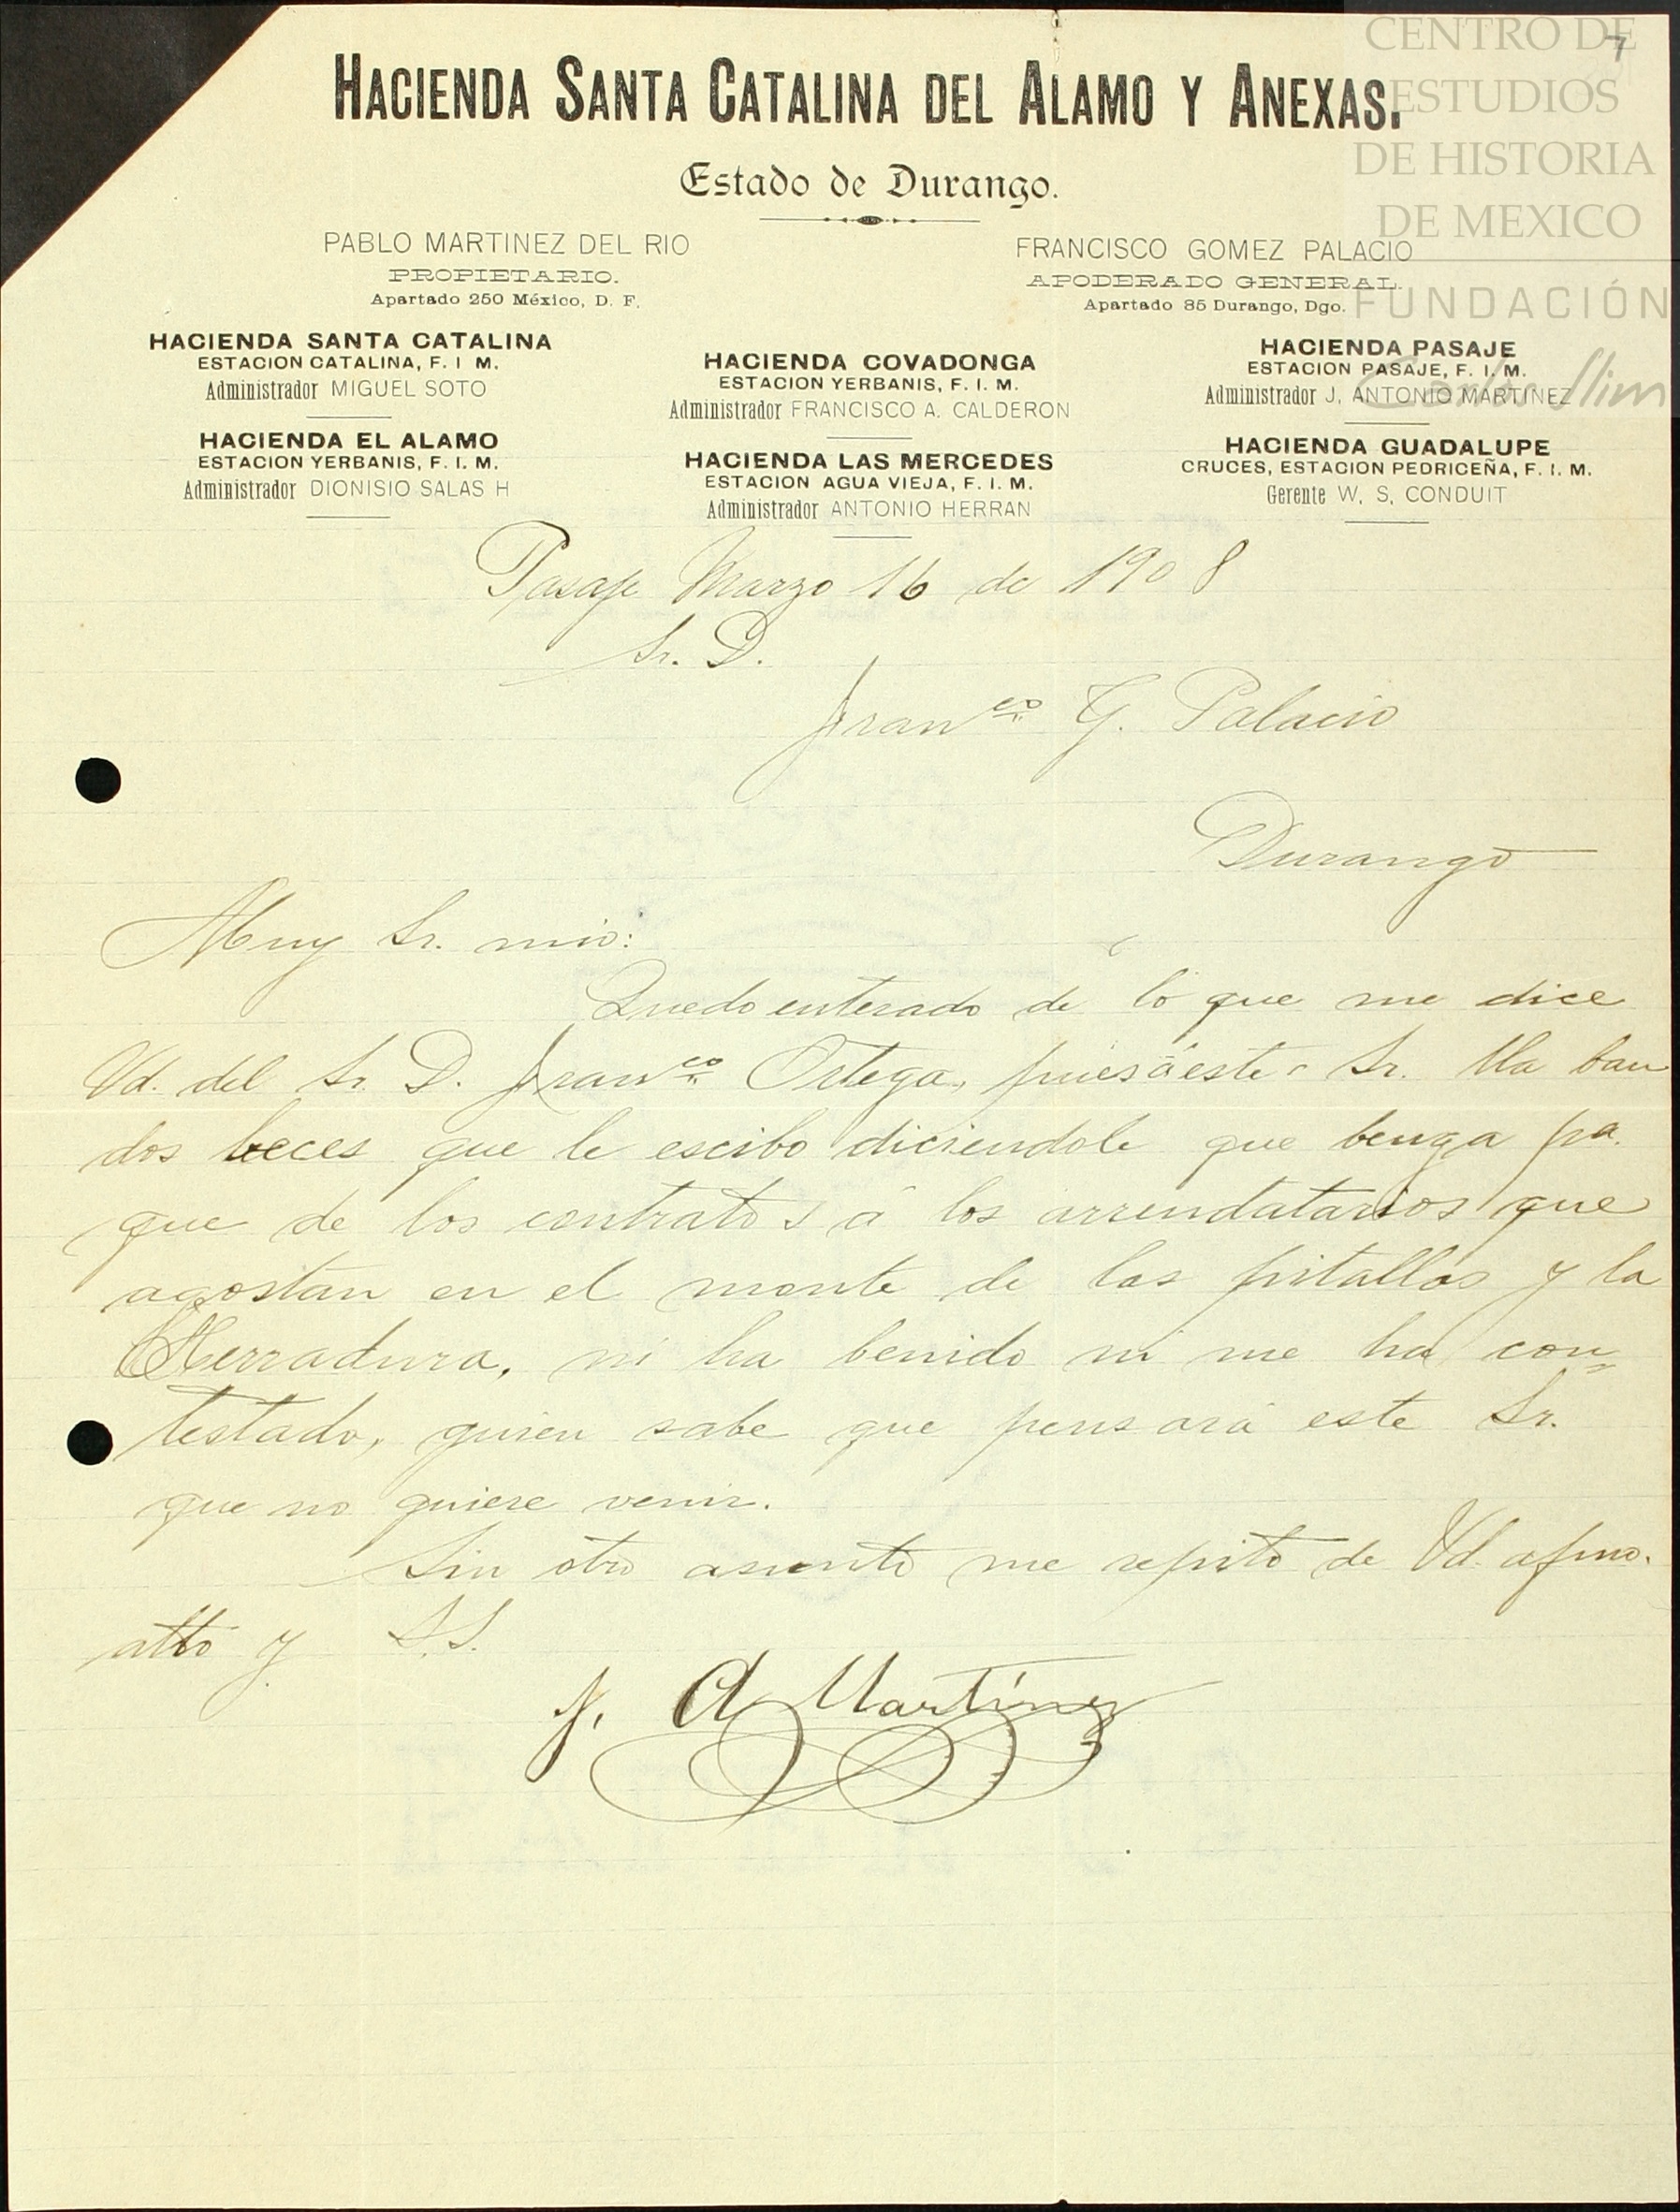 7
CENTRO DE
ESTUDIOS
DE HISTORIA
DE MEXICO
FUNDACIÓN
Carlos Slim
HACIENDA SANTA CATALINA DEL ALAMO Y ANEXAS.
Estado de Durango.
PABLO MARTINEZ DEL RIO
PROPIETARIO.
Apartado 250 México, D. F.
FRANCISCO GOMEZ PALACIO
APODERADO GENERAL.
Apartado 85 Durango, Dgo.
HACIENDA SANTA CATALINA
ESTACION CATALINA, F. I M.
Administrador MIGUEL SOTO
HACIENDA EL ALAMO
ESTACION YERBANIS, F. I. M.
Administrador DIONISIO SALAS H
HACIENDA COVADONGA
ESTACION YERBANIS, F. I. M.
Administrador FRANCISCO A. CALDERON
HACIENDA LAS MERCEDES
ESTACION AGUA VIEJA, F. I. M.
Administrador ANTONIO HERRAN
HACIENDA PASAJE
ESTACION PASAJE, F. I. M.
Administrador J. ANTONIO MARTINEZ
HACIENDA GUADALUPE
CRUCES, ESTACION PEDRICEÑA, F. I. M.
Gerente W. S. CONDUIT
Pasaje Marzo 16 de 1908
Sr. D.
Franco G. Palacio
Durango
Muy Sr. mio:
Quedo enterado de lo que me dice
Vd. del Sr. D. Franco Ortega, pues á este Sr. lla ban
dos beces que le escibo diciendole que benga pa.
que de los contratos á los arrendatarios que
agostan en el monte de las pitallas y la
Herradura, ni ha benido ni me ha con=
testado, quien sabe que pensará este Sr.
que no quiere venir.
Sin otro asunto me repito de Vd. afmo.
atto y S.S.
J. A Martínez